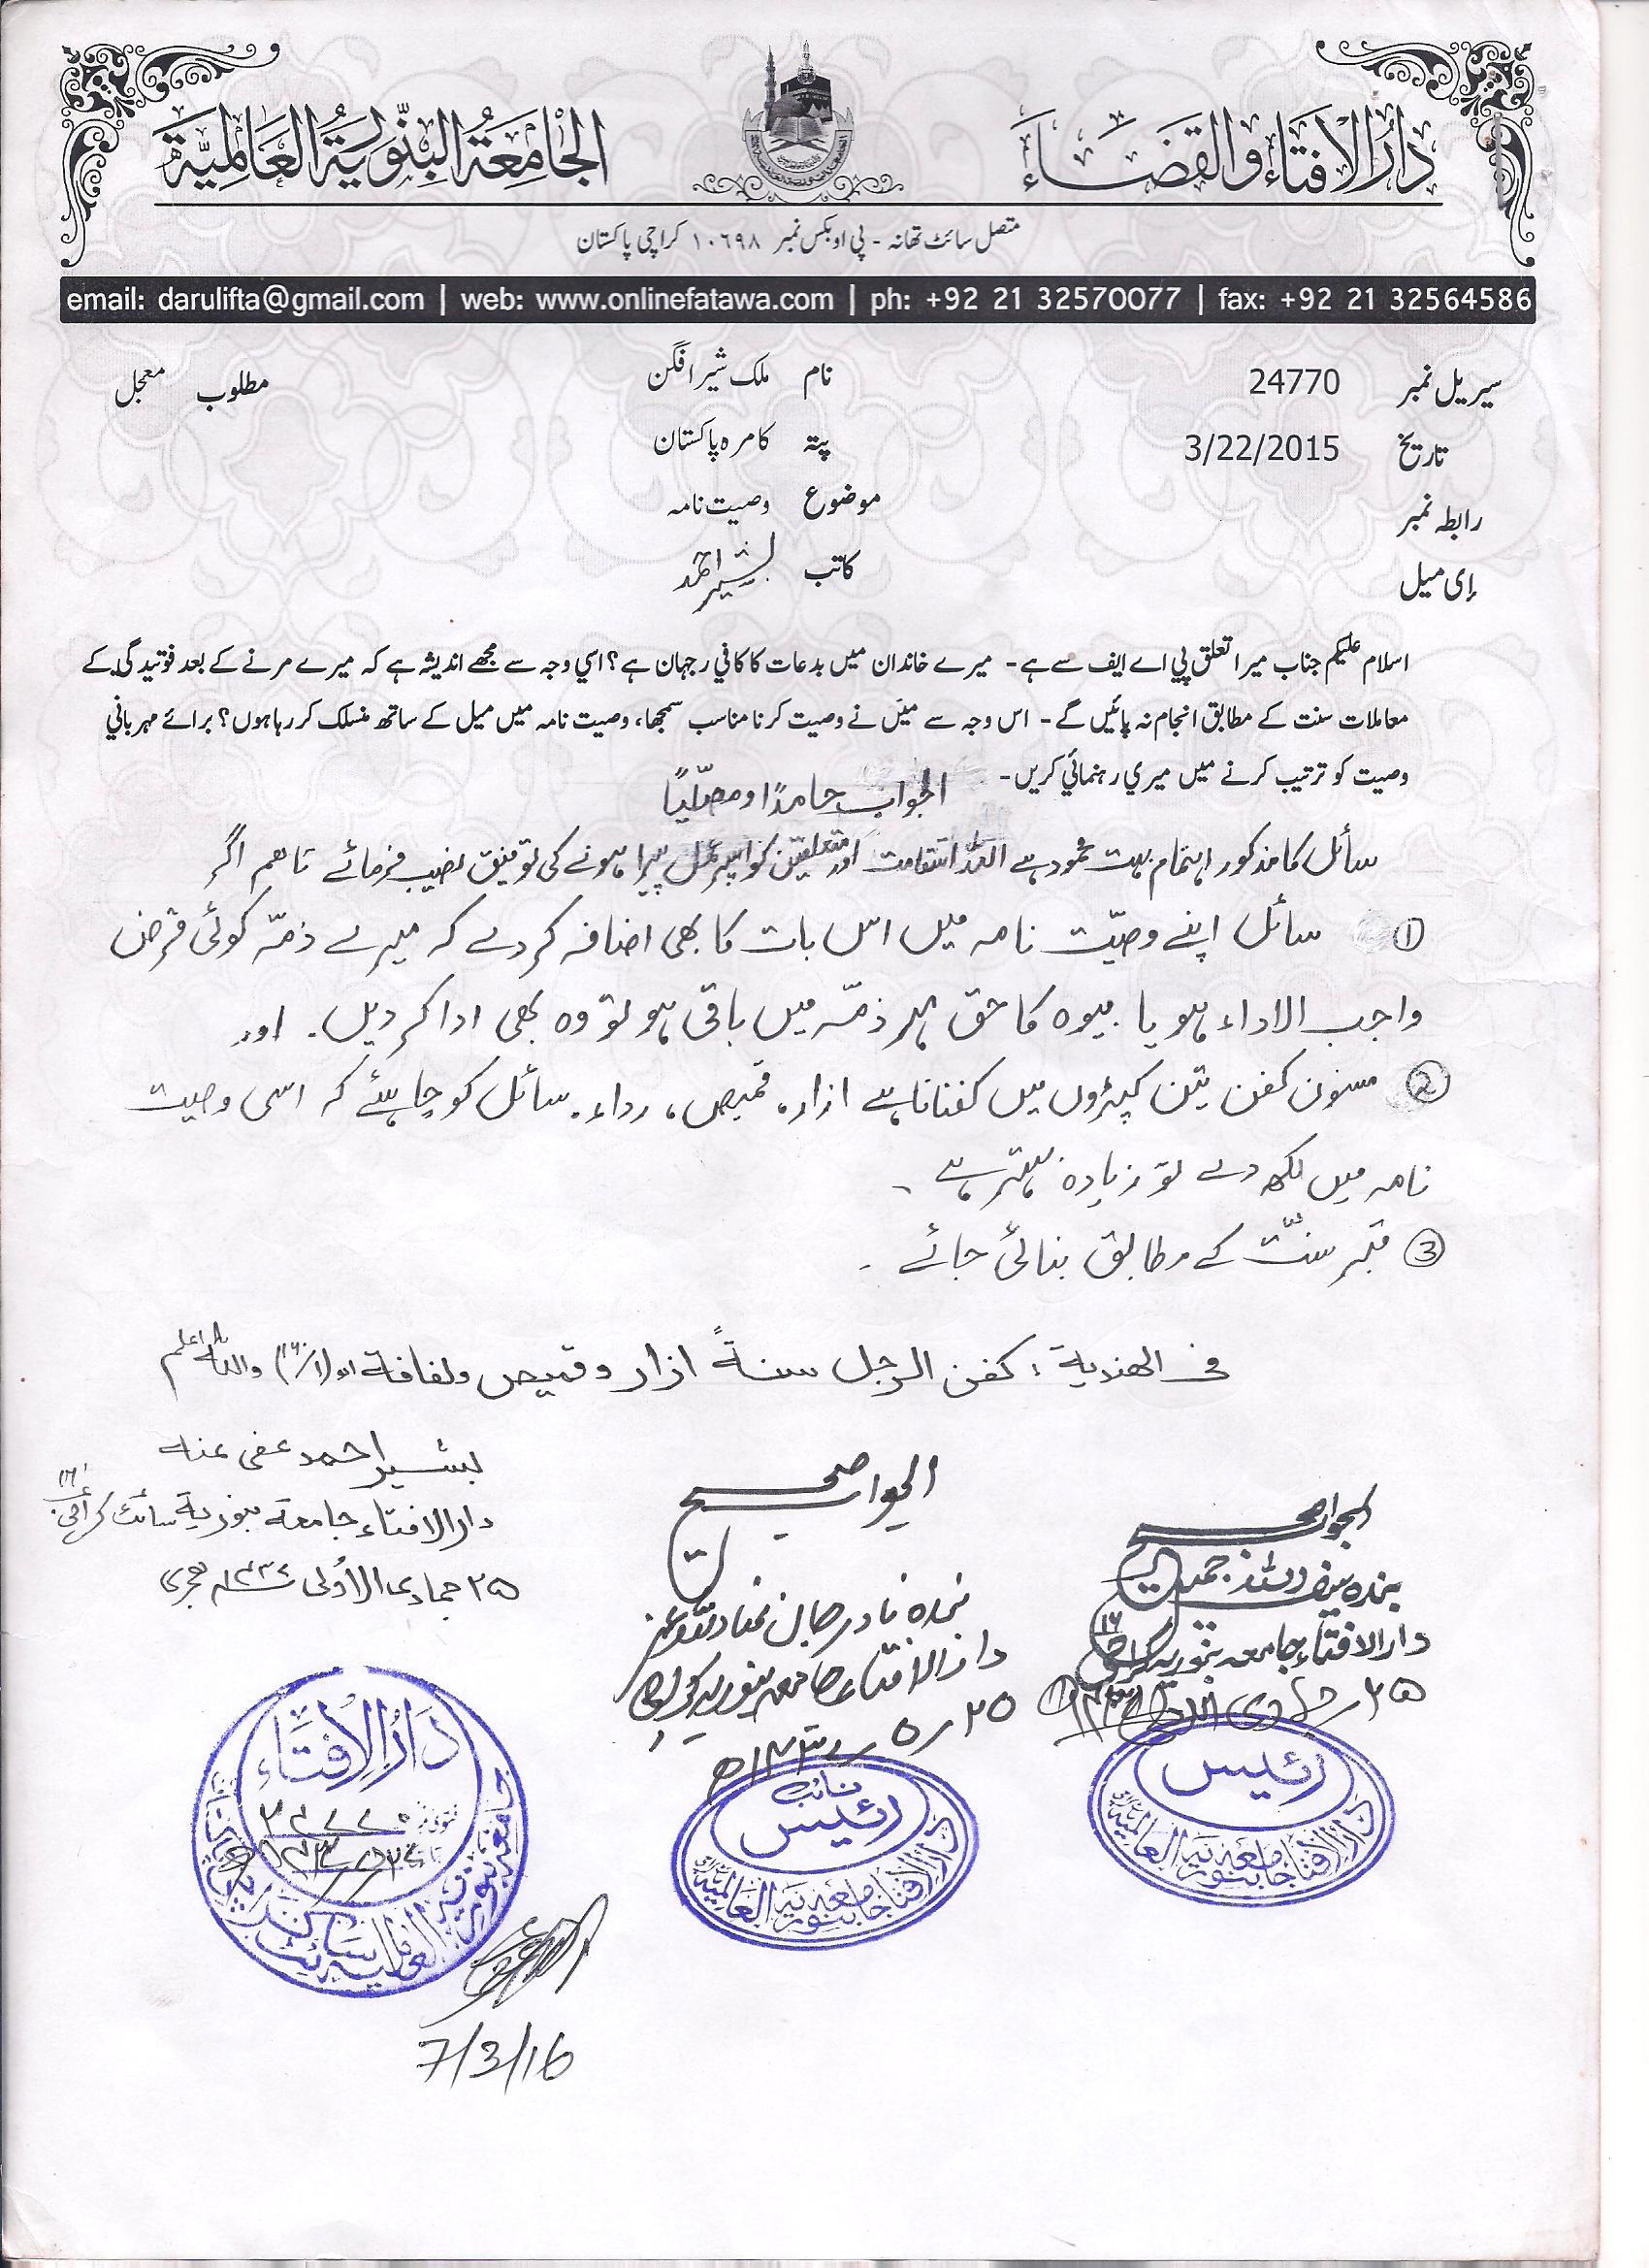 دارُ الافتاء والقضاء
الجامعۃ البنّوریۃ العالمیۃ
متصل سائٹ تھانہ - پی او بکس نمبر ۱۰٦۹۸ کراچی پاکستان
email: darulifta@gmail.com | web: www.onlinefatawa.com | ph: +92 21 32570077 | fax: +92 21 32564586
سیریل نمبر 24770 نام ملک شیر افگن مطلوب معجل
تاریخ 3/22/2015 پتہ کامرہ پاکستان
رابطہ نمبر موضوع وصیت نامہ
اِی میل کاتب بشیر احمد
اسلام علیکم جناب میرا تعلق پی اے ایف سے ہے - میرے خاندان میں بدعات کا کافی رجہان ہے؟ اسی وجہ سے مجھے اندیشہ ہے کہ میرے مرنے کے بعد فوتیدگی کے
معاملات سنت کے مطابق انجام نہ پائیں گے - اس وجہ سے میں نے وصیت کرنا مناسب سمجھا، وصیت نامہ میں میل کے ساتھ منسلک کر رہا ہوں؟ برائے مہربانی
وصیت کو ترتیب کرنے میں میری رہنمائی کریں -
الجواب حامدًا و مصلّیاً
سائل کا مذکور اہتمام بہت محمود ہے اللہ استقامت اور متعلقین کو اس پر عمل پیرا ہونے کی توفیق نصیب فرمائے تاھم اگر
① سائل اپنے وصیّت نامہ میں اس بات کا بھی اضافہ کر دے کہ میرے ذمّہ کوئی قرض
واجب الاداء ہو یا بیوہ کا حق مہر ذمّہ میں باقی ہو تو وہ بھی ادا کر دیں۔ اور
② مسنون کفن تین کپڑوں میں کفنانا ہے ازار، قمیص، رداء۔ سائل کو چاہئے کہ اسی وصیت
نامہ میں لکھ دے تو زیادہ بہتر ہے۔
③ قبر سنّت کے مطابق بنائی جائے۔
فی الھندیۃ: کفن الرجل سنۃً ازار و قمیص و لفافۃ اھ (۱/۱٦۰) واللہ اعلم
بشیر احمد عفی عنہ
دار الافتاء جامعۃ بنوریۃ سائٹ کراچی ۱٦
۲۵ جمادی الاُولی ھجری
الجواب صحیح
بندہ نادر جان
دار الافتاء جامعہ بنوریہ کراچی
۲۵ / ۵ /
الجواب صحیح
بندہ سیف اللہ جمیل
دار الافتاء جامعہ بنوریہ کراچی ۱٦
۲۵ جمادی
دَارُ الاِفتَاء
فتویٰ نمبر ۲۴۷۷۰
نائب رئیس
دار الافتاء جامعہ بنوریہ العالمیہ
رئیس
دار الافتاء جامعہ بنوریہ العالمیہ
7/3/16